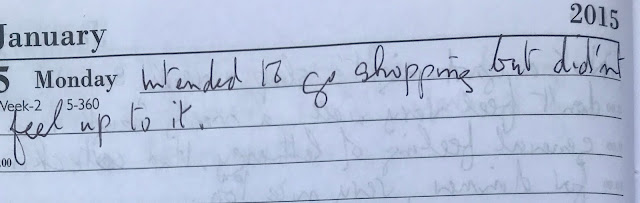 January 2015
5 Monday Intended to go shopping but did'nt
Week-2 5-360
feel up to it.
:00